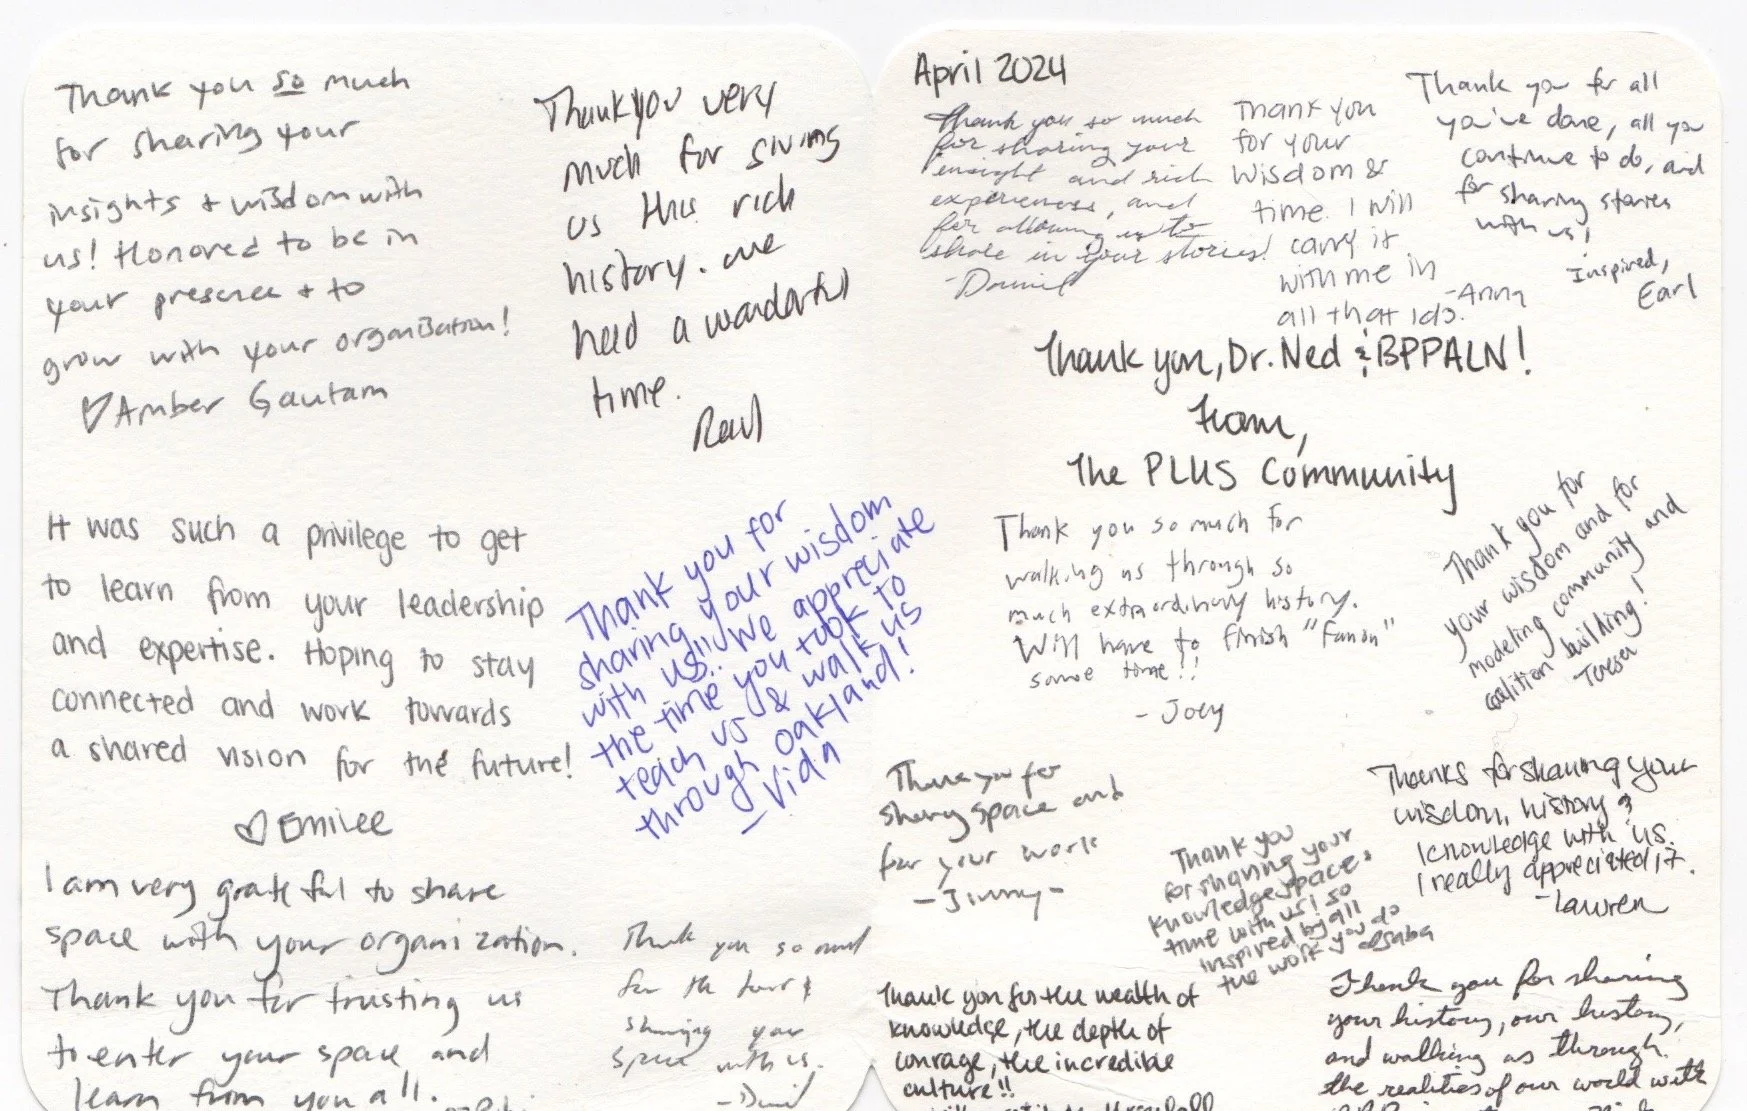 Thank you so much
for sharing your
insights + wisdom with
us! Honored to be in
your presence + to
grow with your organization!
♡Amber Gautam
Thank you very
much for giving
us this rich
history. we
had a wonderful
time.
Raul
It was such a privilege to get
to learn from your leadership
and expertise. Hoping to stay
connected and work towards
a shared vision for the future!
♡Emilee
Thank you for
sharing your wisdom
with us!! We appreciate
the time you took to
teach us & walk us
through Oakland!
- Vida
I am very grateful to share
space with your organization.
Thank you for trusting us
to enter your space and
learn from you all.
Thank you so much
for the tour &
sharing your
space with us.
April 2024
Thank you so much
for sharing your
insight and rich
experiences, and
for allowing us to
share in your stories!
- Daniel
Thank you
for your
wisdom &
time. I will
carry it
with me in
all that I do.
- Anna
Thank you for all
you've done, all you
continue to do, and
for sharing stories
with us!
Inspired,
Earl
Thank you, Dr. Ned & BPPALN!
From,
The PLUS Community
Thank you so much for
walking us through so
much extraordinary history.
Will have to finish "Fanon"
some time!!
- Joey
Thank you for
your wisdom and for
modeling community and
coalition building!
Teresa
Thank you for
sharing space and
for your work
- Jimmy -
Thank you
for sharing your
knowledge, space,
time with us! So
inspired by all
the work you do
Thanks for sharing your
wisdom, history &
knowledge with us.
I really appreciated it.
- Lauren
Thank you for the wealth of
knowledge, the depth of
courage, the incredible
culture!!
Thank you for sharing
your history, our history,
and walking us through
the realities of our world with